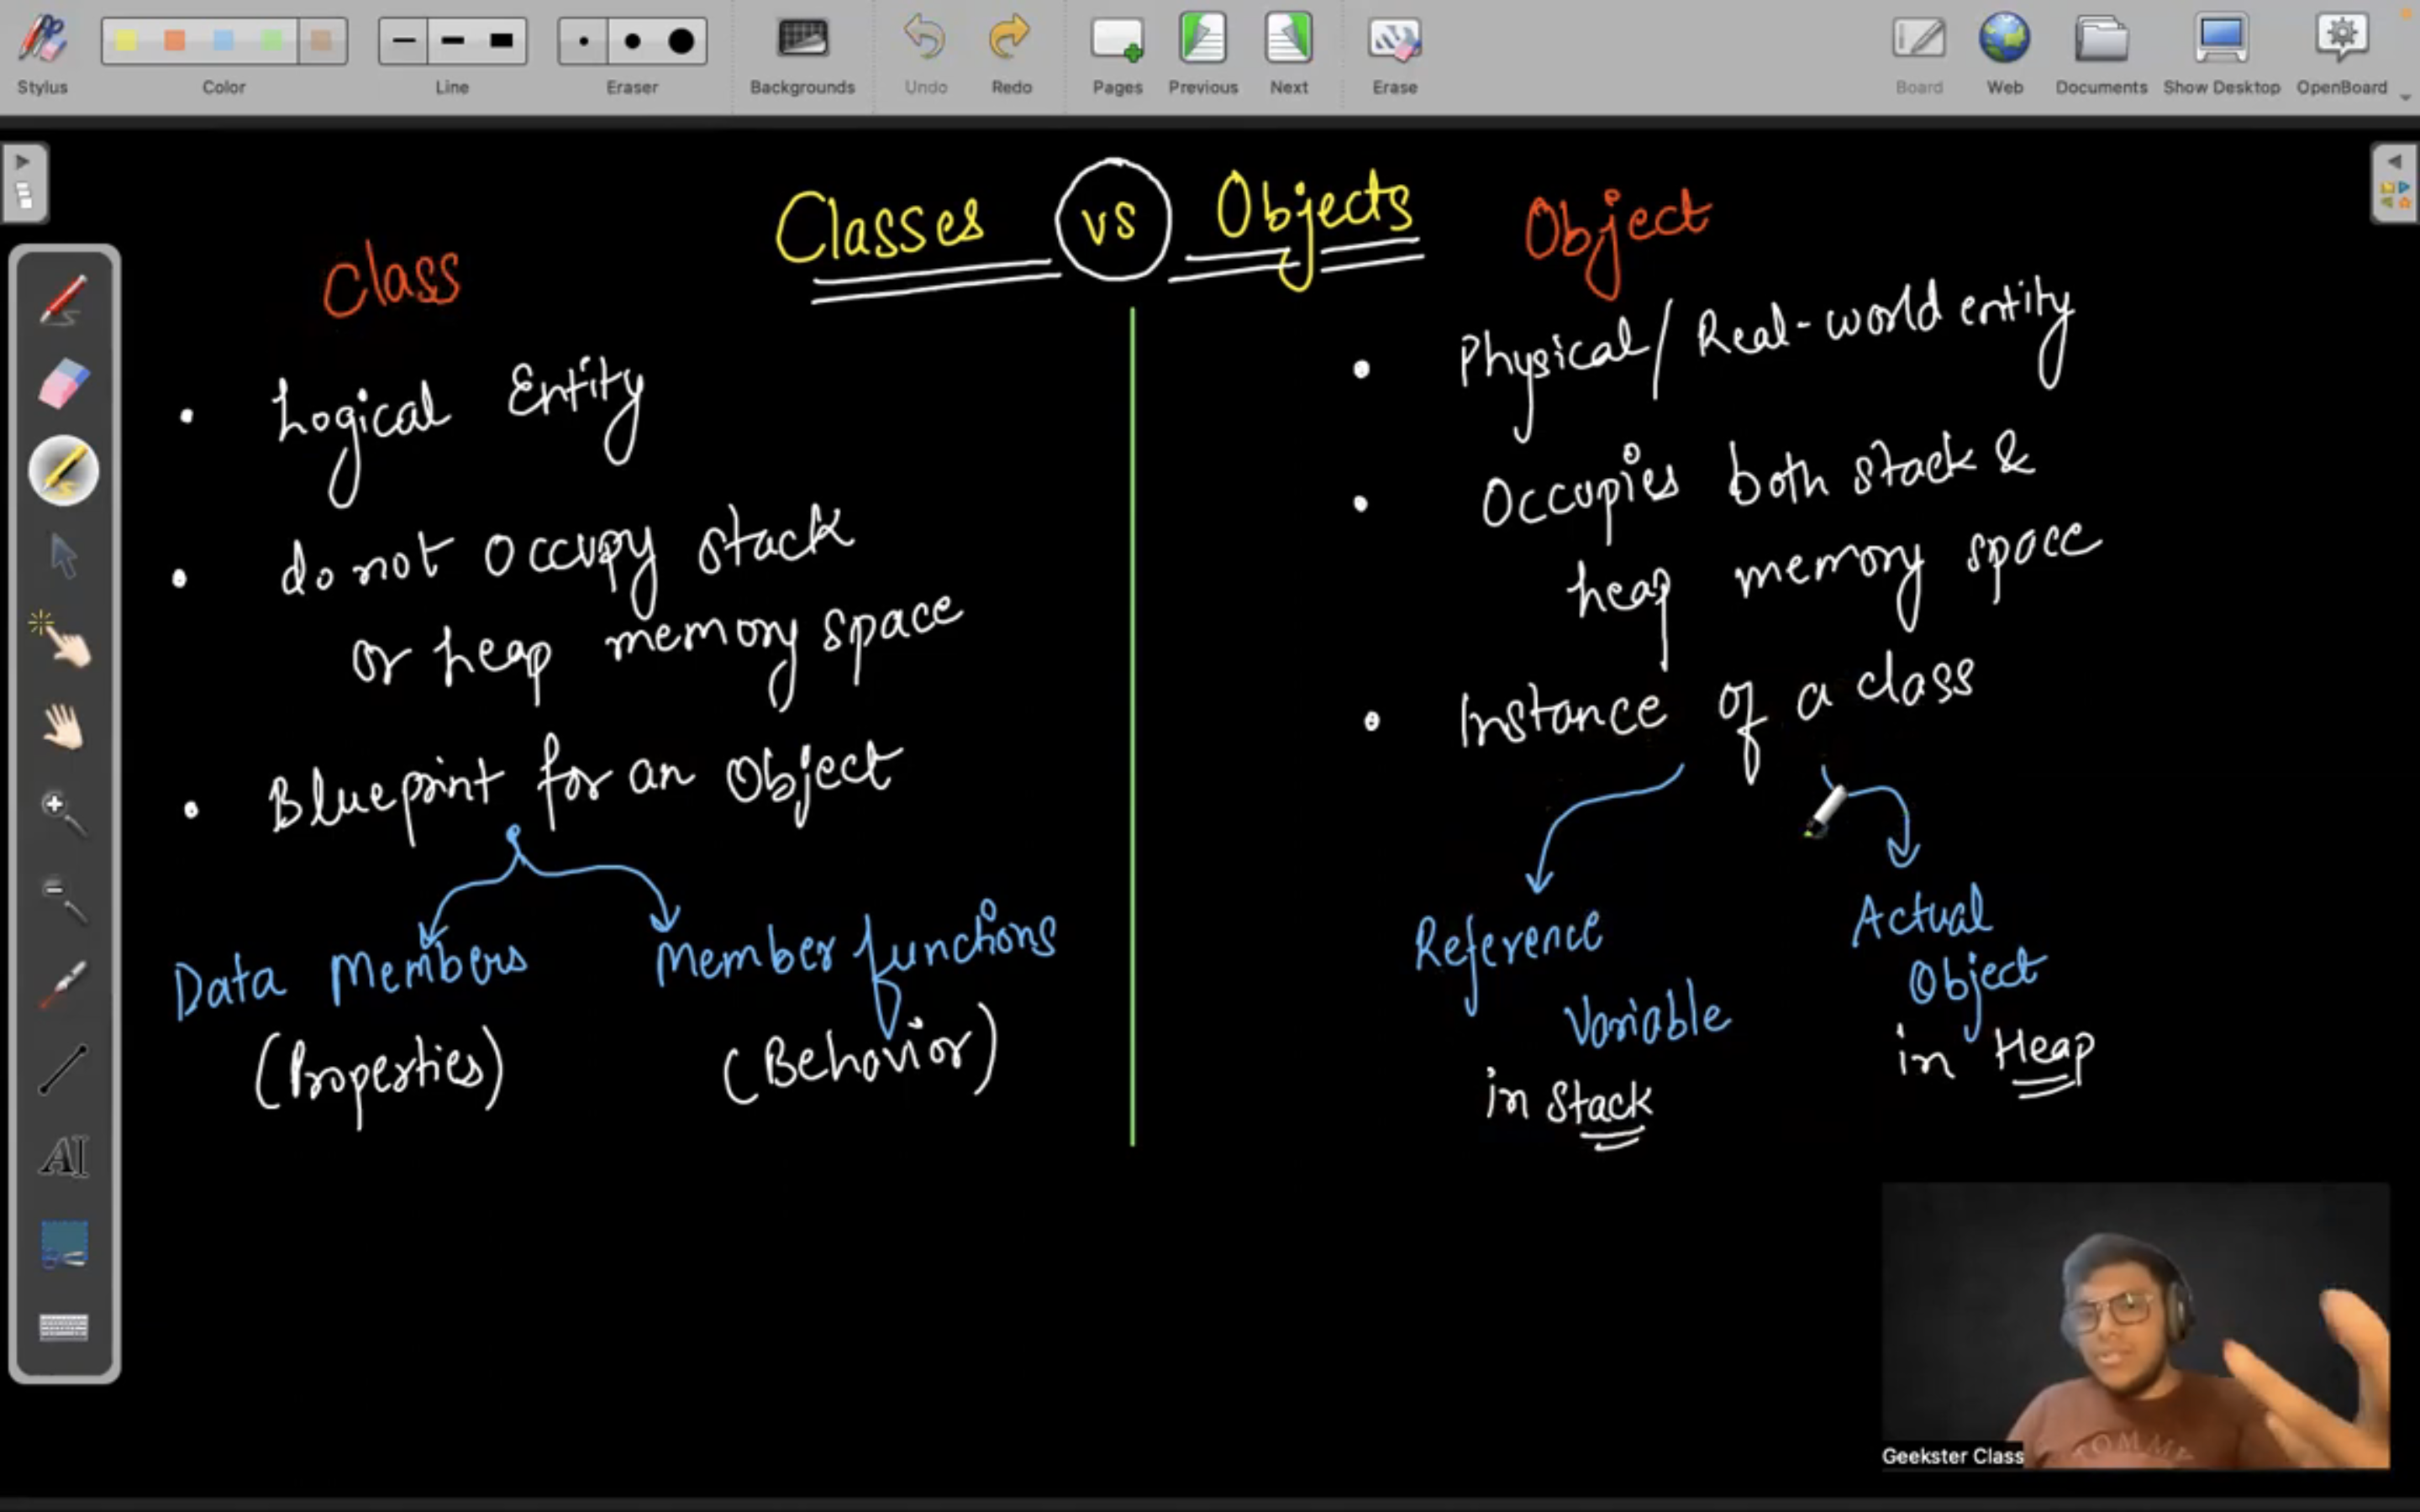 Stylus
Color
Line
Eraser
Backgrounds
Undo
Redo
Pages
Previous
Next
Erase
Board
Web
Documents
Show Desktop
OpenBoard
Classes vs Objects
Class
• Logical Entity
• do not occupy stack
or heap memory space
• Blueprint for an Object
Data Members
(Properties)
Member functions
(Behavior)
Object
• Physical/Real-world entity
• Occupies both stack &
heap memory space
• Instance of a class
Reference
Variable
in Stack
Actual
Object
in Heap
AI
TOMMY
Geekster Class